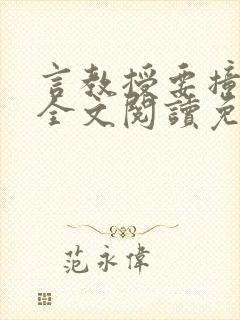 言教授要撞
全文閱讀免
范永偉